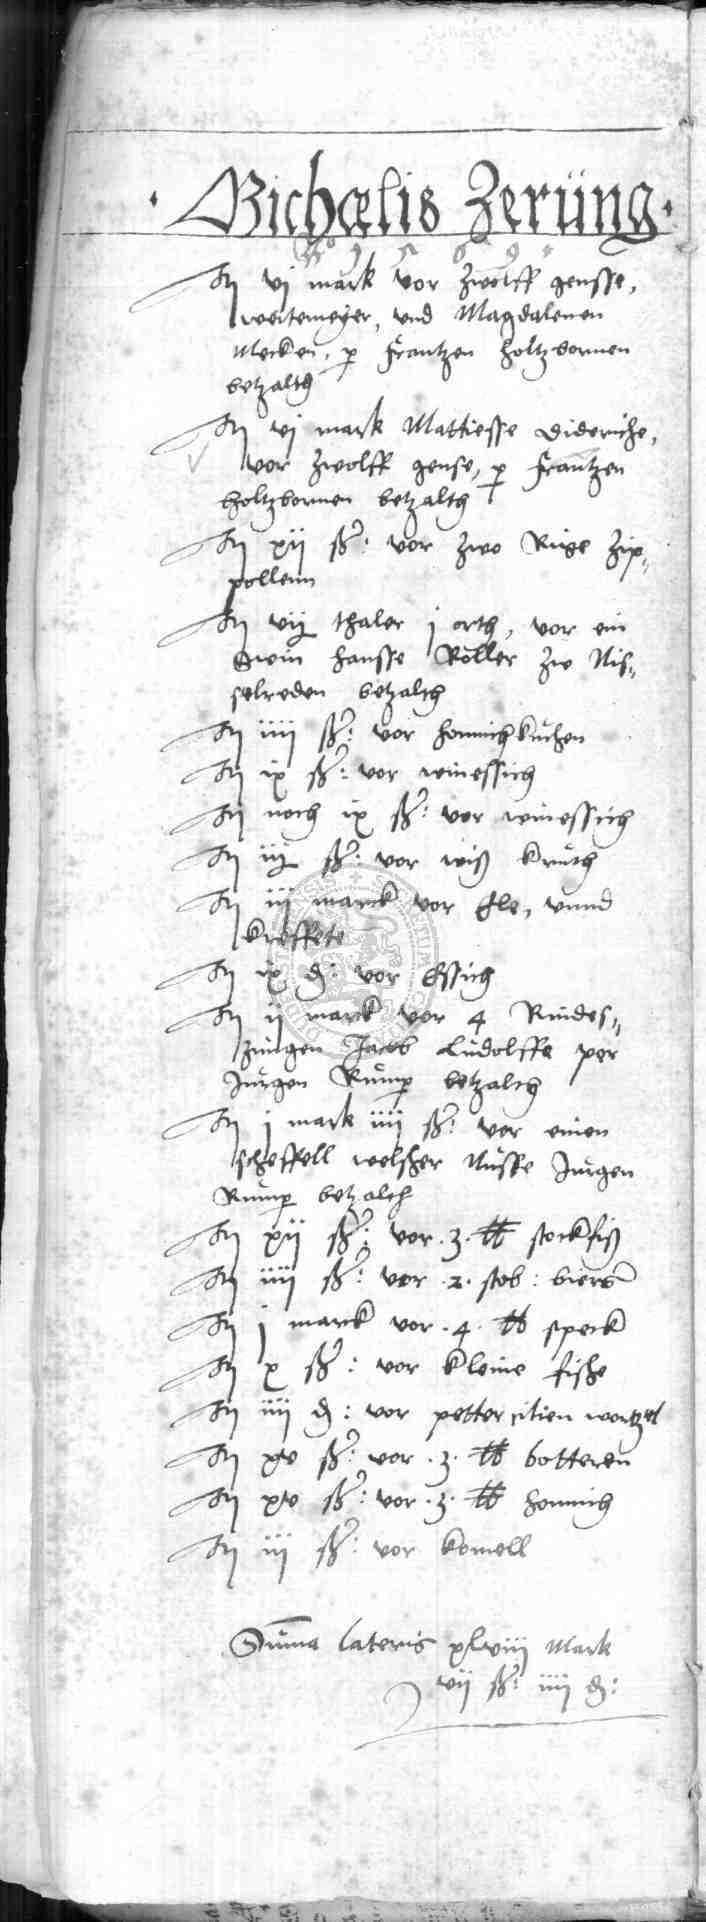 · Michaelis Zerüng ·
Ao 1 5 6 9
It vj mark vor zwolff gensse,
wertemeyer, vnd Magdalenen
Mecken, p frantzen holtzbornen
betzalth
It vj mark Mattiesse Diderichse,
vor zwolff gense, p frantzen
holtzbornen betzalth
It xij ß: vor zwo Rige Zip=
pollenn
It vij thaler j orth, vor ein
Swin Hansse Röller zw Nis=
selreden betzalth
It iiij ß: vor honnichkuchen
It ix ß: vor winessich
It noch ix ß: vor winessich
It iij ß: vor wiß kruth
It iij marck vor Ele, vnnd
kreffete
It ix d: vor Essich
It ij marck vor 4 Rindes=
zungen Jacob Ludolffe per
Jurgen Rump betzalth
It j mark iiij ß: vor einen
scheffell welscher Nusse Jurgen
Rump betzalth
It xij ß: vor .3. lb stockfiß
It iiij ß: vor .2. stob: biers
It j marck vor .4. lb speck
It x ß: vor kleine fische
It iiij d: vor pettercilien wortzel
It xv ß: vor .3. lb botteren
It xv ß: vor .3. lb honnich
It iij ß: vor komell
Suma lateris xlviij Mark
vij ß: iiij d: